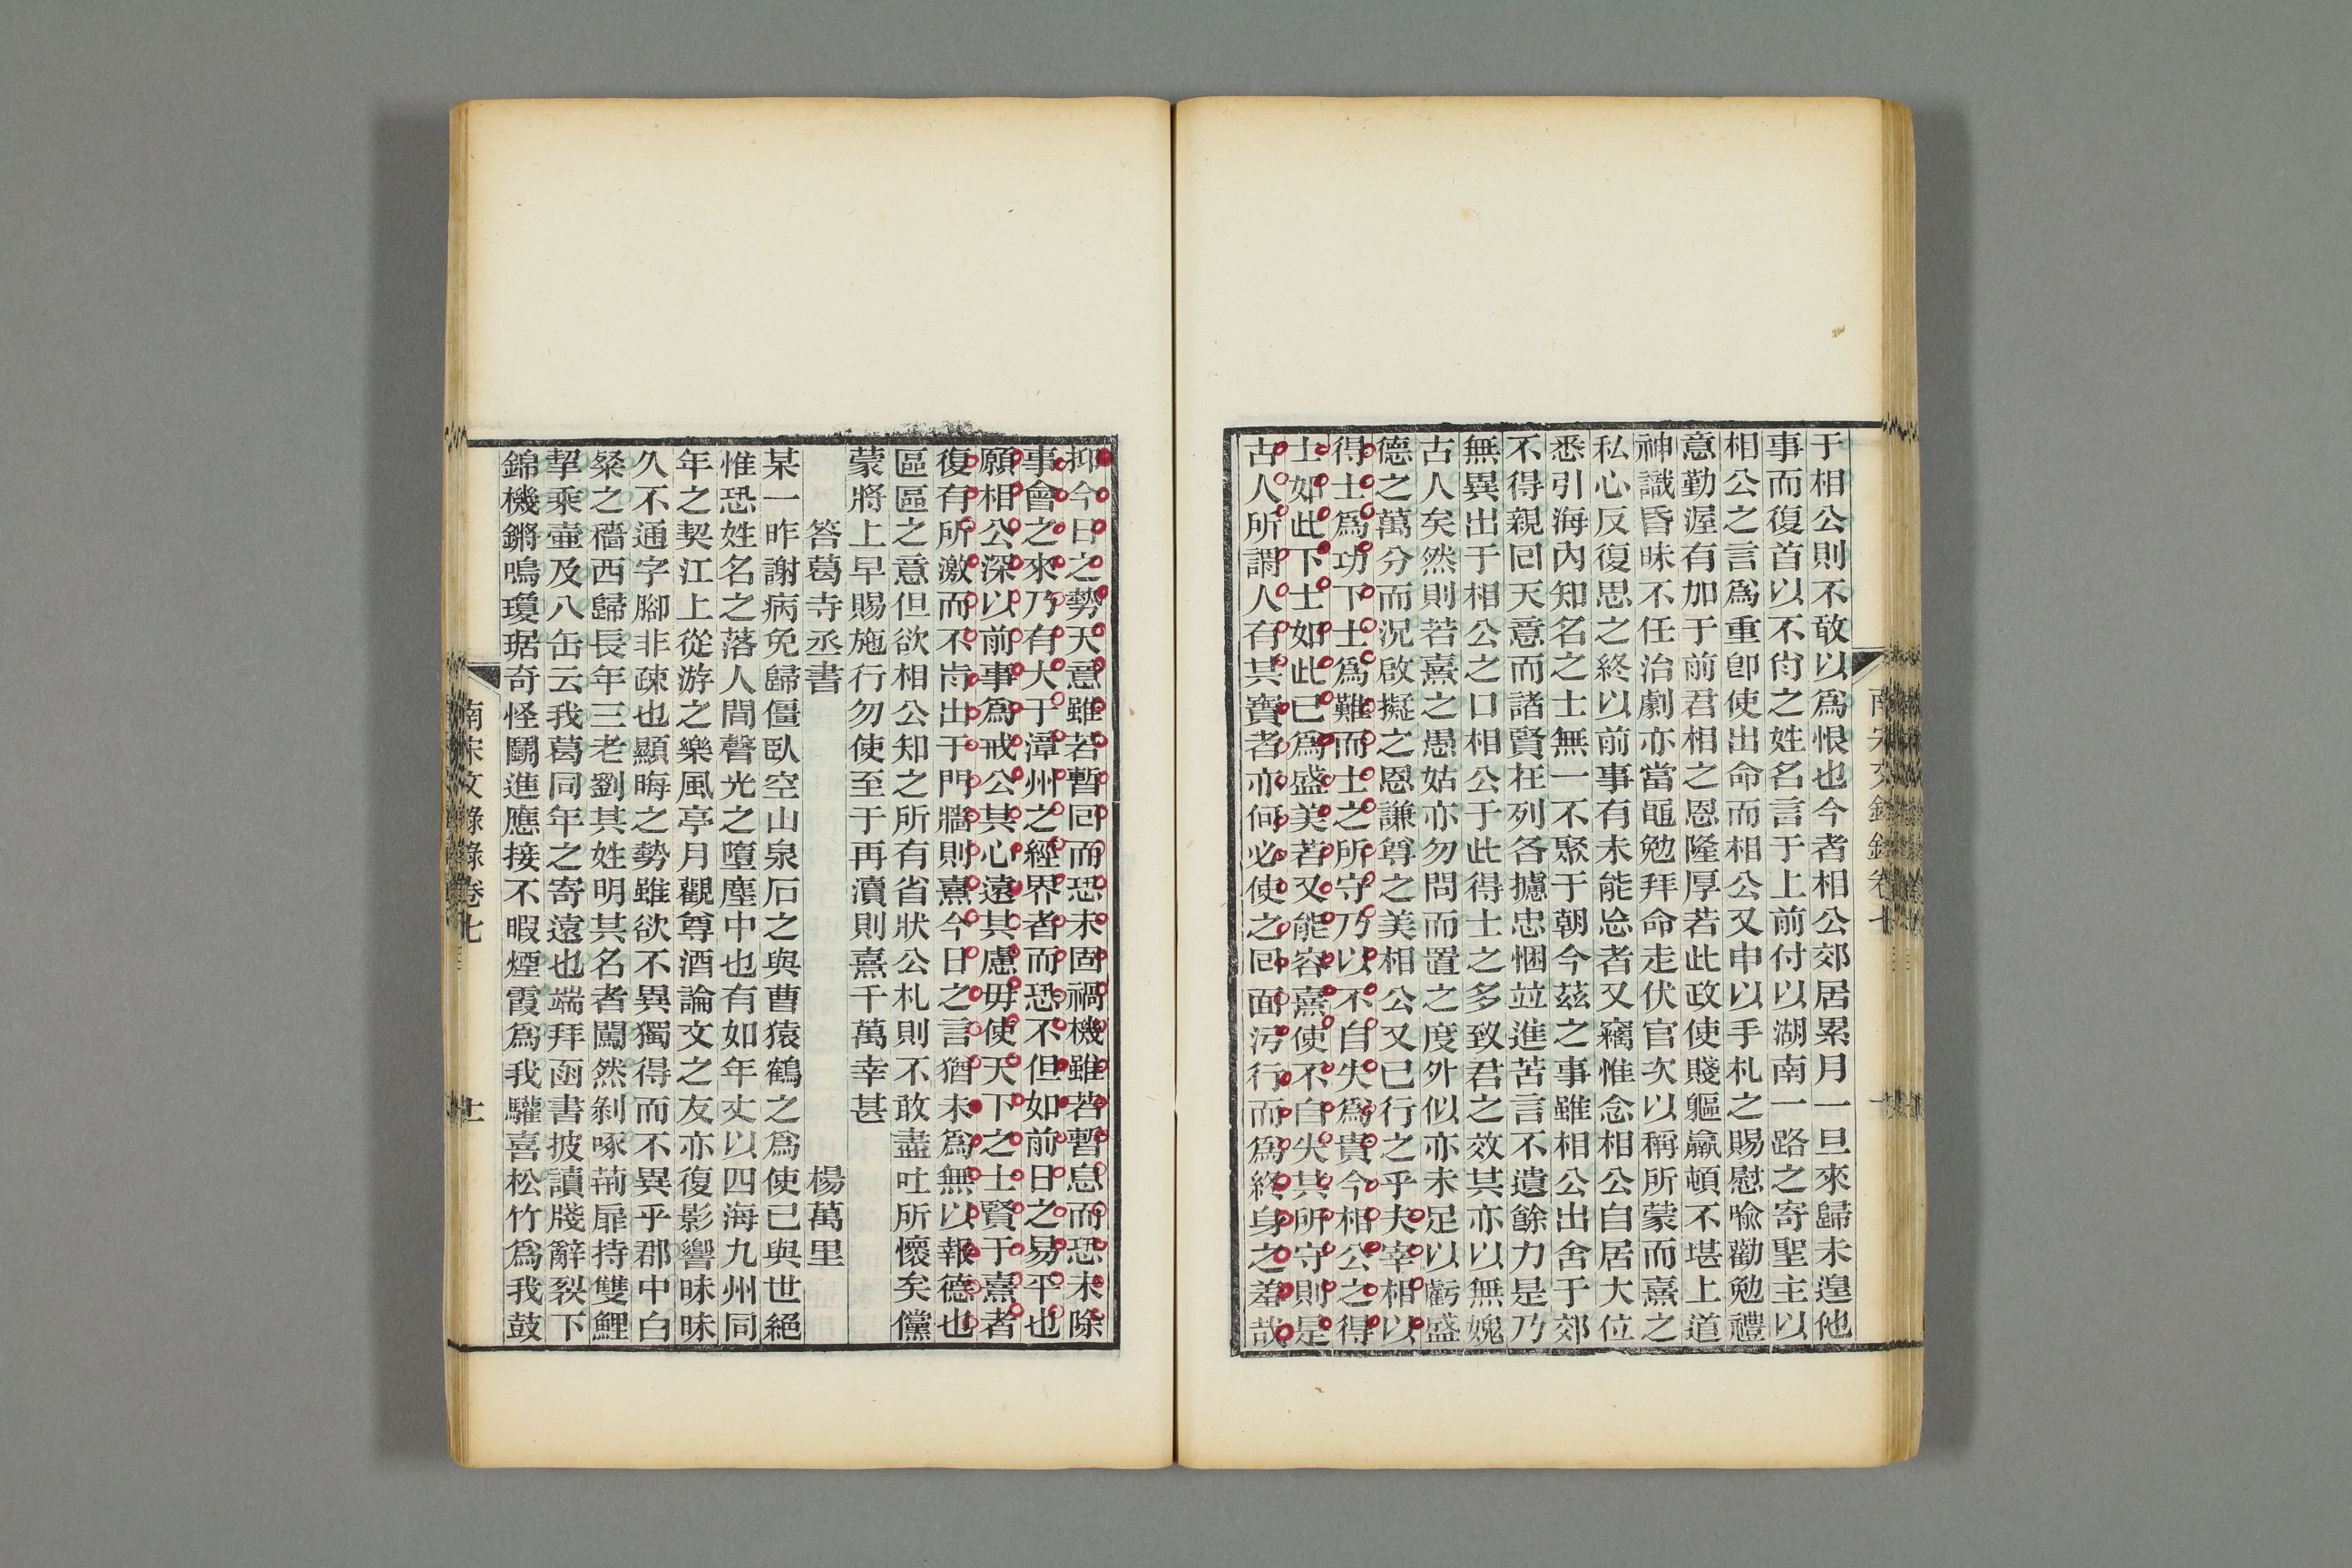 于相公則不敢以爲恨也今者相公郊居累月一旦來歸未遑他
事而復首以不肯之姓名言于上前付以湖南一路之寄聖主以
相公之言爲重卽使出命而相公又申以手札之賜慰喩勸勉禮
意勤渥有加于前君相之恩隆厚若此政使賤軀羸頓不堪上道
神識昏昧不任治劇亦當黽勉拜命走伏官次以稱所蒙而熹之
私心反復思之終以前事有未能忘者又竊惟念相公自居大位
悉引海內知名之士無一不聚于朝今茲之事雖相公出舍于郊
不得親回天意而諸賢在列各攄忠悃竝進苦言不遺餘力是乃
無異出于相公之口相公于此得士之多致君之效其亦以無媿
古人矣然則若熹之愚姑亦勿問而置之度外似亦未足以虧盛
德之萬分而況啟擬之恩謙尊之美相公又已行之乎夫宰相以
得士爲功下士爲難而士之所守乃以不自失爲貴今相公之得
士如此下士如此已爲盛美若又能容熹使不自失其所守則是
古人所謂人有其寶者亦何必使之回面污行而爲終身之羞哉
南宋文錄錄卷七
抑今日之勢天意雖若暫回而恐未固禍機雖若暫息而恐未除
事會之來乃有大于漳州之經界者而恐不但如前日之易平也
願相公深以前事爲戒公其心遠其慮毋使天下之士賢于熹者
復有所激而不肯出于門牆則熹今日之言猶未爲無以報德也
區區之意但欲相公知之所有省狀公札則不敢盡吐所懷矣儻
蒙將上早賜施行勿使至于再瀆則熹千萬幸甚
答葛寺丞書 楊萬里
某一昨謝病免歸僵臥空山泉石之與曹猿鶴之爲使已與世絕
惟恐姓名之落人間聲光之墮塵中也有如年丈以四海九州同
年之契江上從游之樂風亭月觀尊酒論文之友亦復影響昧昧
久不通字腳非疎也顯晦之勢雖欲不異獨得而不異乎郡中白
粲之穡西歸長年三老劉其姓明其名者闖然剝啄荊扉持雙鯉
挈乘壷及八缶云我葛同年之寄遠也端拜函書披讀牋辭裂下
錦機鏘鳴瓊琚奇怪鬬進應接不暇煙霞爲我驩喜松竹爲我鼓
南宋文錄錄卷七